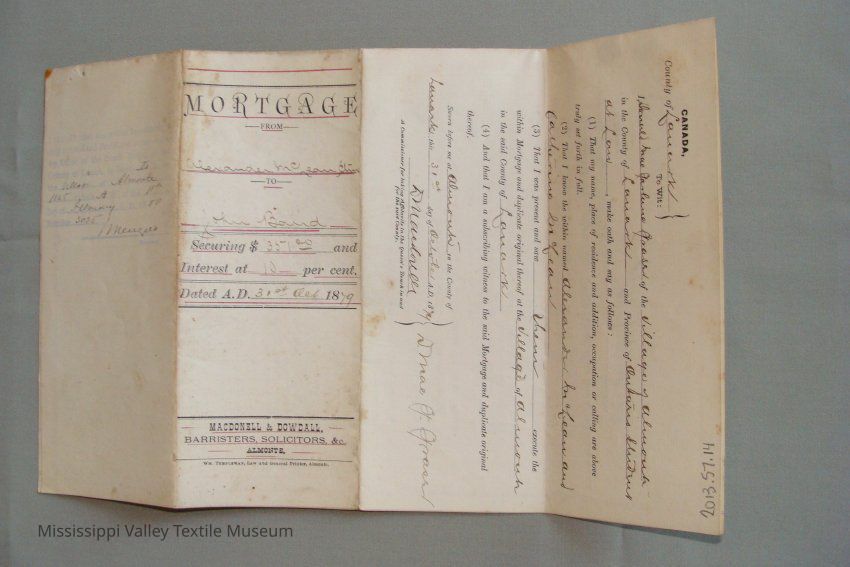 MORTGAGE
FROM
Alexander McLean
TO
John Baird
Securing $ 351.00 and
Interest at 10 per cent.
Dated A.D. 31st Oct 1879
MACDONELL & DOWDALL,
BARRISTERS, SOLICITORS, &c.
ALMONTE.
Wm. Templeman, Law and General Printer, Almonte.
CANADA,
County of Lanark
To Wit:
of the Village of Almonte
in the County of Lanark and Province of Ontario Student
at Law, make oath and say as follows:
(1) That my name, place of residence and addition, occupation or calling are above
truly set forth in full.
(2) That I know the within named Alexander McLean and
Catherine McLean
(3) That I was present and saw them execute the
within Mortgage and duplicate original thereof at the Village of Almonte
in the said County of Lanark
(4) And that I am a subscribing witness to the said Mortgage and duplicate original
thereof.
Sworn before me at Almonte in the County of
Lanark this 31st day of October A.D. 1879
D Macdonell
A Commissioner for taking Affidavits in the Queen's Bench in and
for the said County.
Village of Almonte
2013.57.14
Mississippi Valley Textile Museum